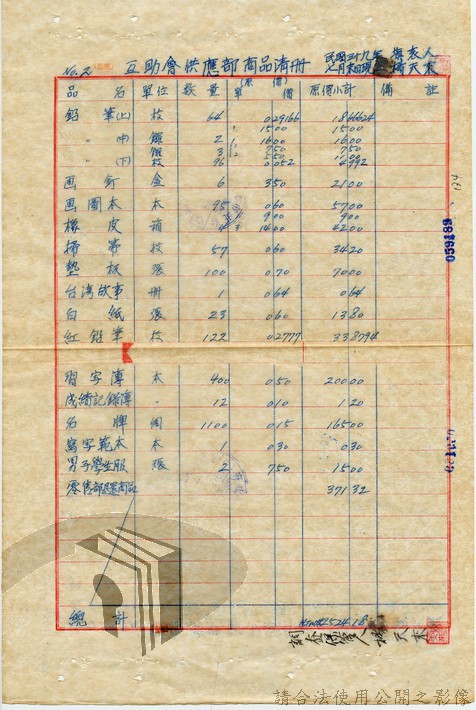 No. 2 互助會供應部商品清冊 民國三十九年
七月末日現
品名 單位 數量 (原價)單價 原價小計 備註
鉛筆(上) 枝 64 029166 1866624
〃 (中) 1500 1500
2 1600 1600
3 750 750
〃 (下) 枝 96 0052 4992
画釘 盒 6 350 2100
画圖本 本 95 060 5700
900 900
橡皮 箱 3 1400 4200
掃帚 枝 57 060 3420
墊板 張 100 070 7000
台湾故事 冊 1 064 064
白紙 張 23 060 1380
紅鉛筆 枝 122 02777 338794
習字簿 本 400 050 20000
成績記錄簿 〃 12 010 120
名牌 個 1100 015 16500
寫字範本 本 1 030 030
男子學生服 張 2 750 1500
零售部退還商品 37132
總計 4524.18
059189
請合法使用公開之影像